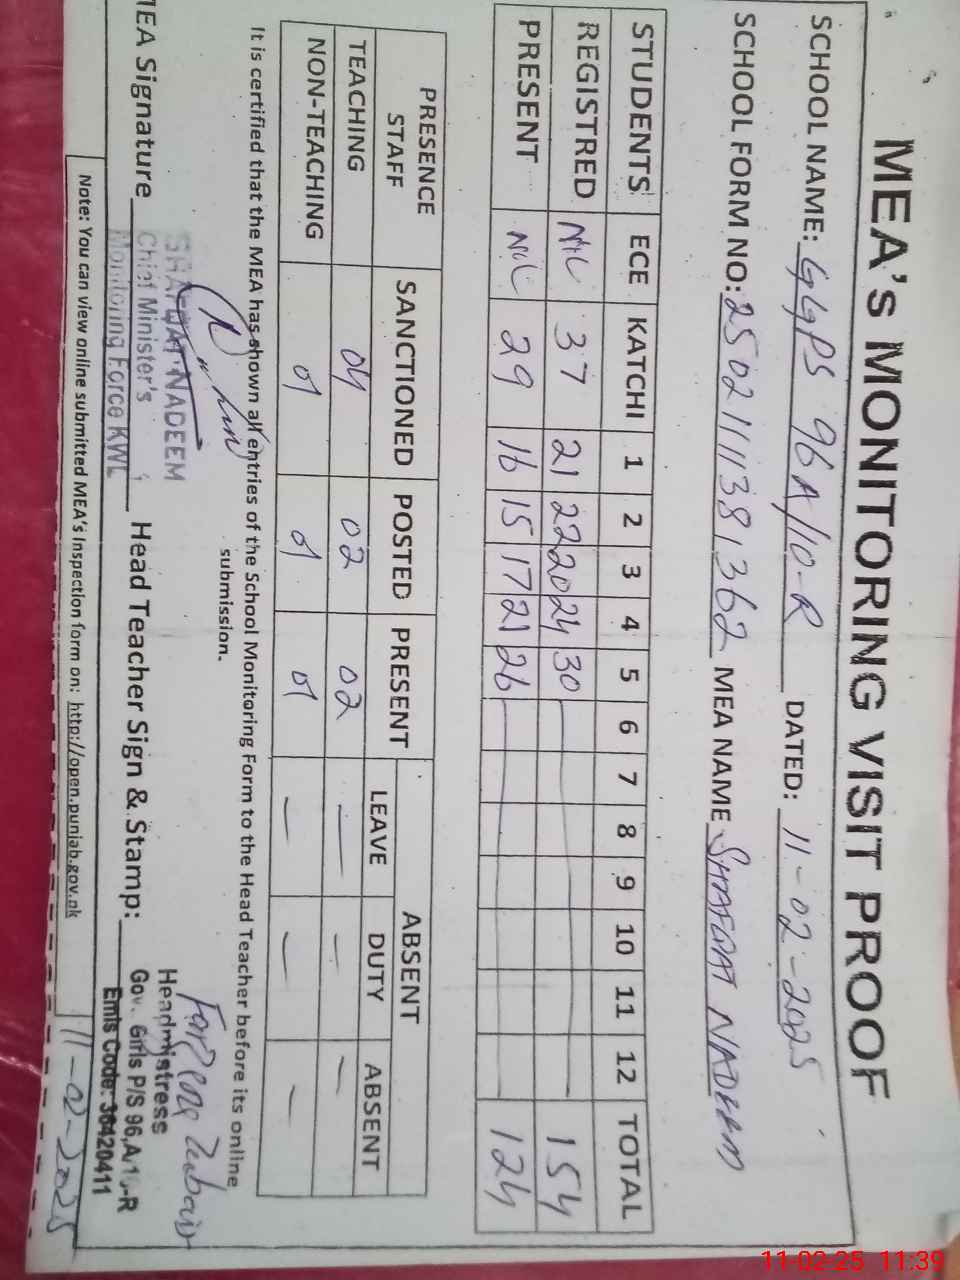 MEA's MONITORING VISIT PROOF
SCHOOL NAME: GGPS 96A/10-R DATED: 11-02-2025
SCHOOL FORM NO: 25021111381362 MEA NAME SHAFQAT NADEEM
STUDENTS ECE KATCHI 1 2 3 4 5 6 7 8 9 10 11 12 TOTAL
REGISTRED NIL 37 21 22 20 24 30 154
PRESENT NIL 29 16 15 17 21 26 124
PRESENCE STAFF SANCTIONED POSTED PRESENT ABSENT
LEAVE DUTY ABSENT
TEACHING 04 02 02 — — —
NON-TEACHING 01 01 01 — — —
It is certified that the MEA has shown all entries of the School Monitoring Form to the Head Teacher before its online
submission.
MEA Signature Head Teacher Sign & Stamp:
SHAFQAT NADEEM
Chief Minister's
Monitoring Force KWL
Headmistress
Gov. Girls P/S 96,A/10-R
Emis Code: 36420411
11-02-2025
Note: You can view online submitted MEA's Inspection form on: http://open.punjab.gov.pk
11-02-25 11:39